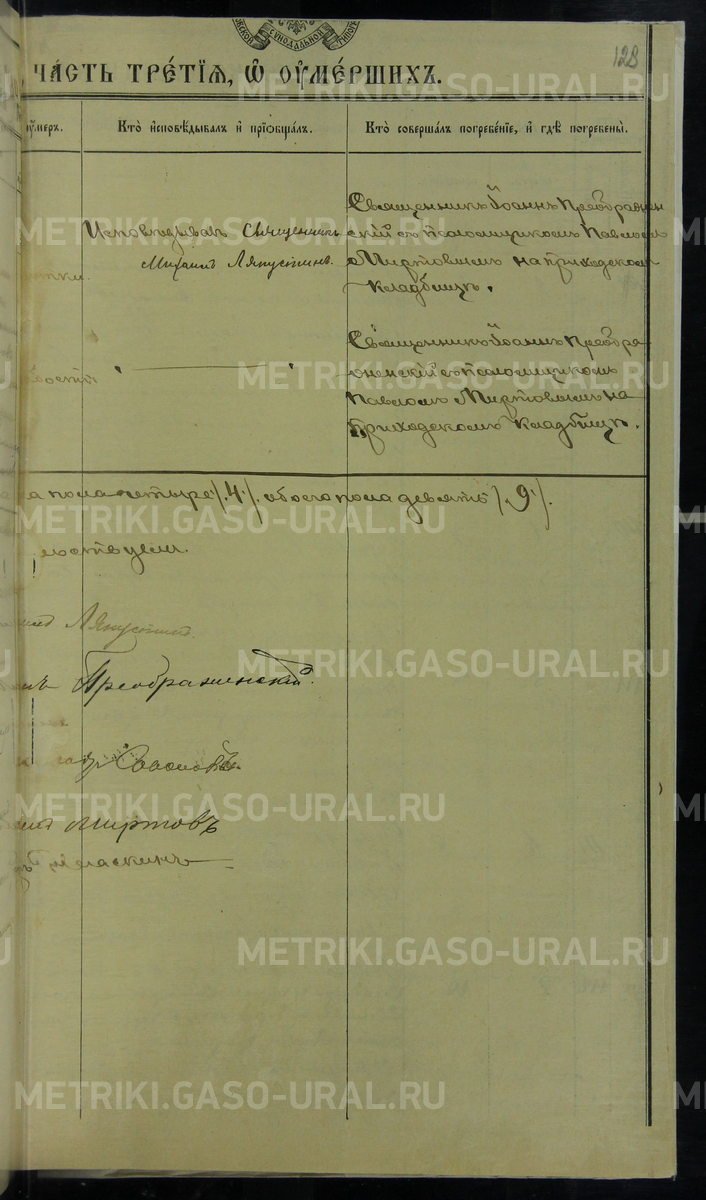 СѴНОДАЛЬНОЙ
128
ЧА́СТЬ ТРЕ́ТІѦ, Ѽ ОУ҆МЕ́РШИХЪ.
Кто̀ и҆сповѣ́дывалъ и҆ прїѡбща́лъ.
Кто̀ соверша́лъ погребе́нїе, и҆ гдѣ̀ погребены̀.
Исповѣдывалъ Священникъ
Михаилъ Ляпустинъ
Священникъ Іоаннъ Преображен
скій съ псаломщикомъ Павломъ
Миртовымъ на приходскомъ
кладбищѣ.
Священникъ Іоаннъ Преобра
женскій съ псаломщикомъ
Павломъ Миртовымъ на
приходскомъ кладбищѣ.
пола четыре /.4./. обоего пола девять /.9./.
Ляпустинъ
Преображенскій.
Миртовъ
METRIKI.GASO-URAL.RU